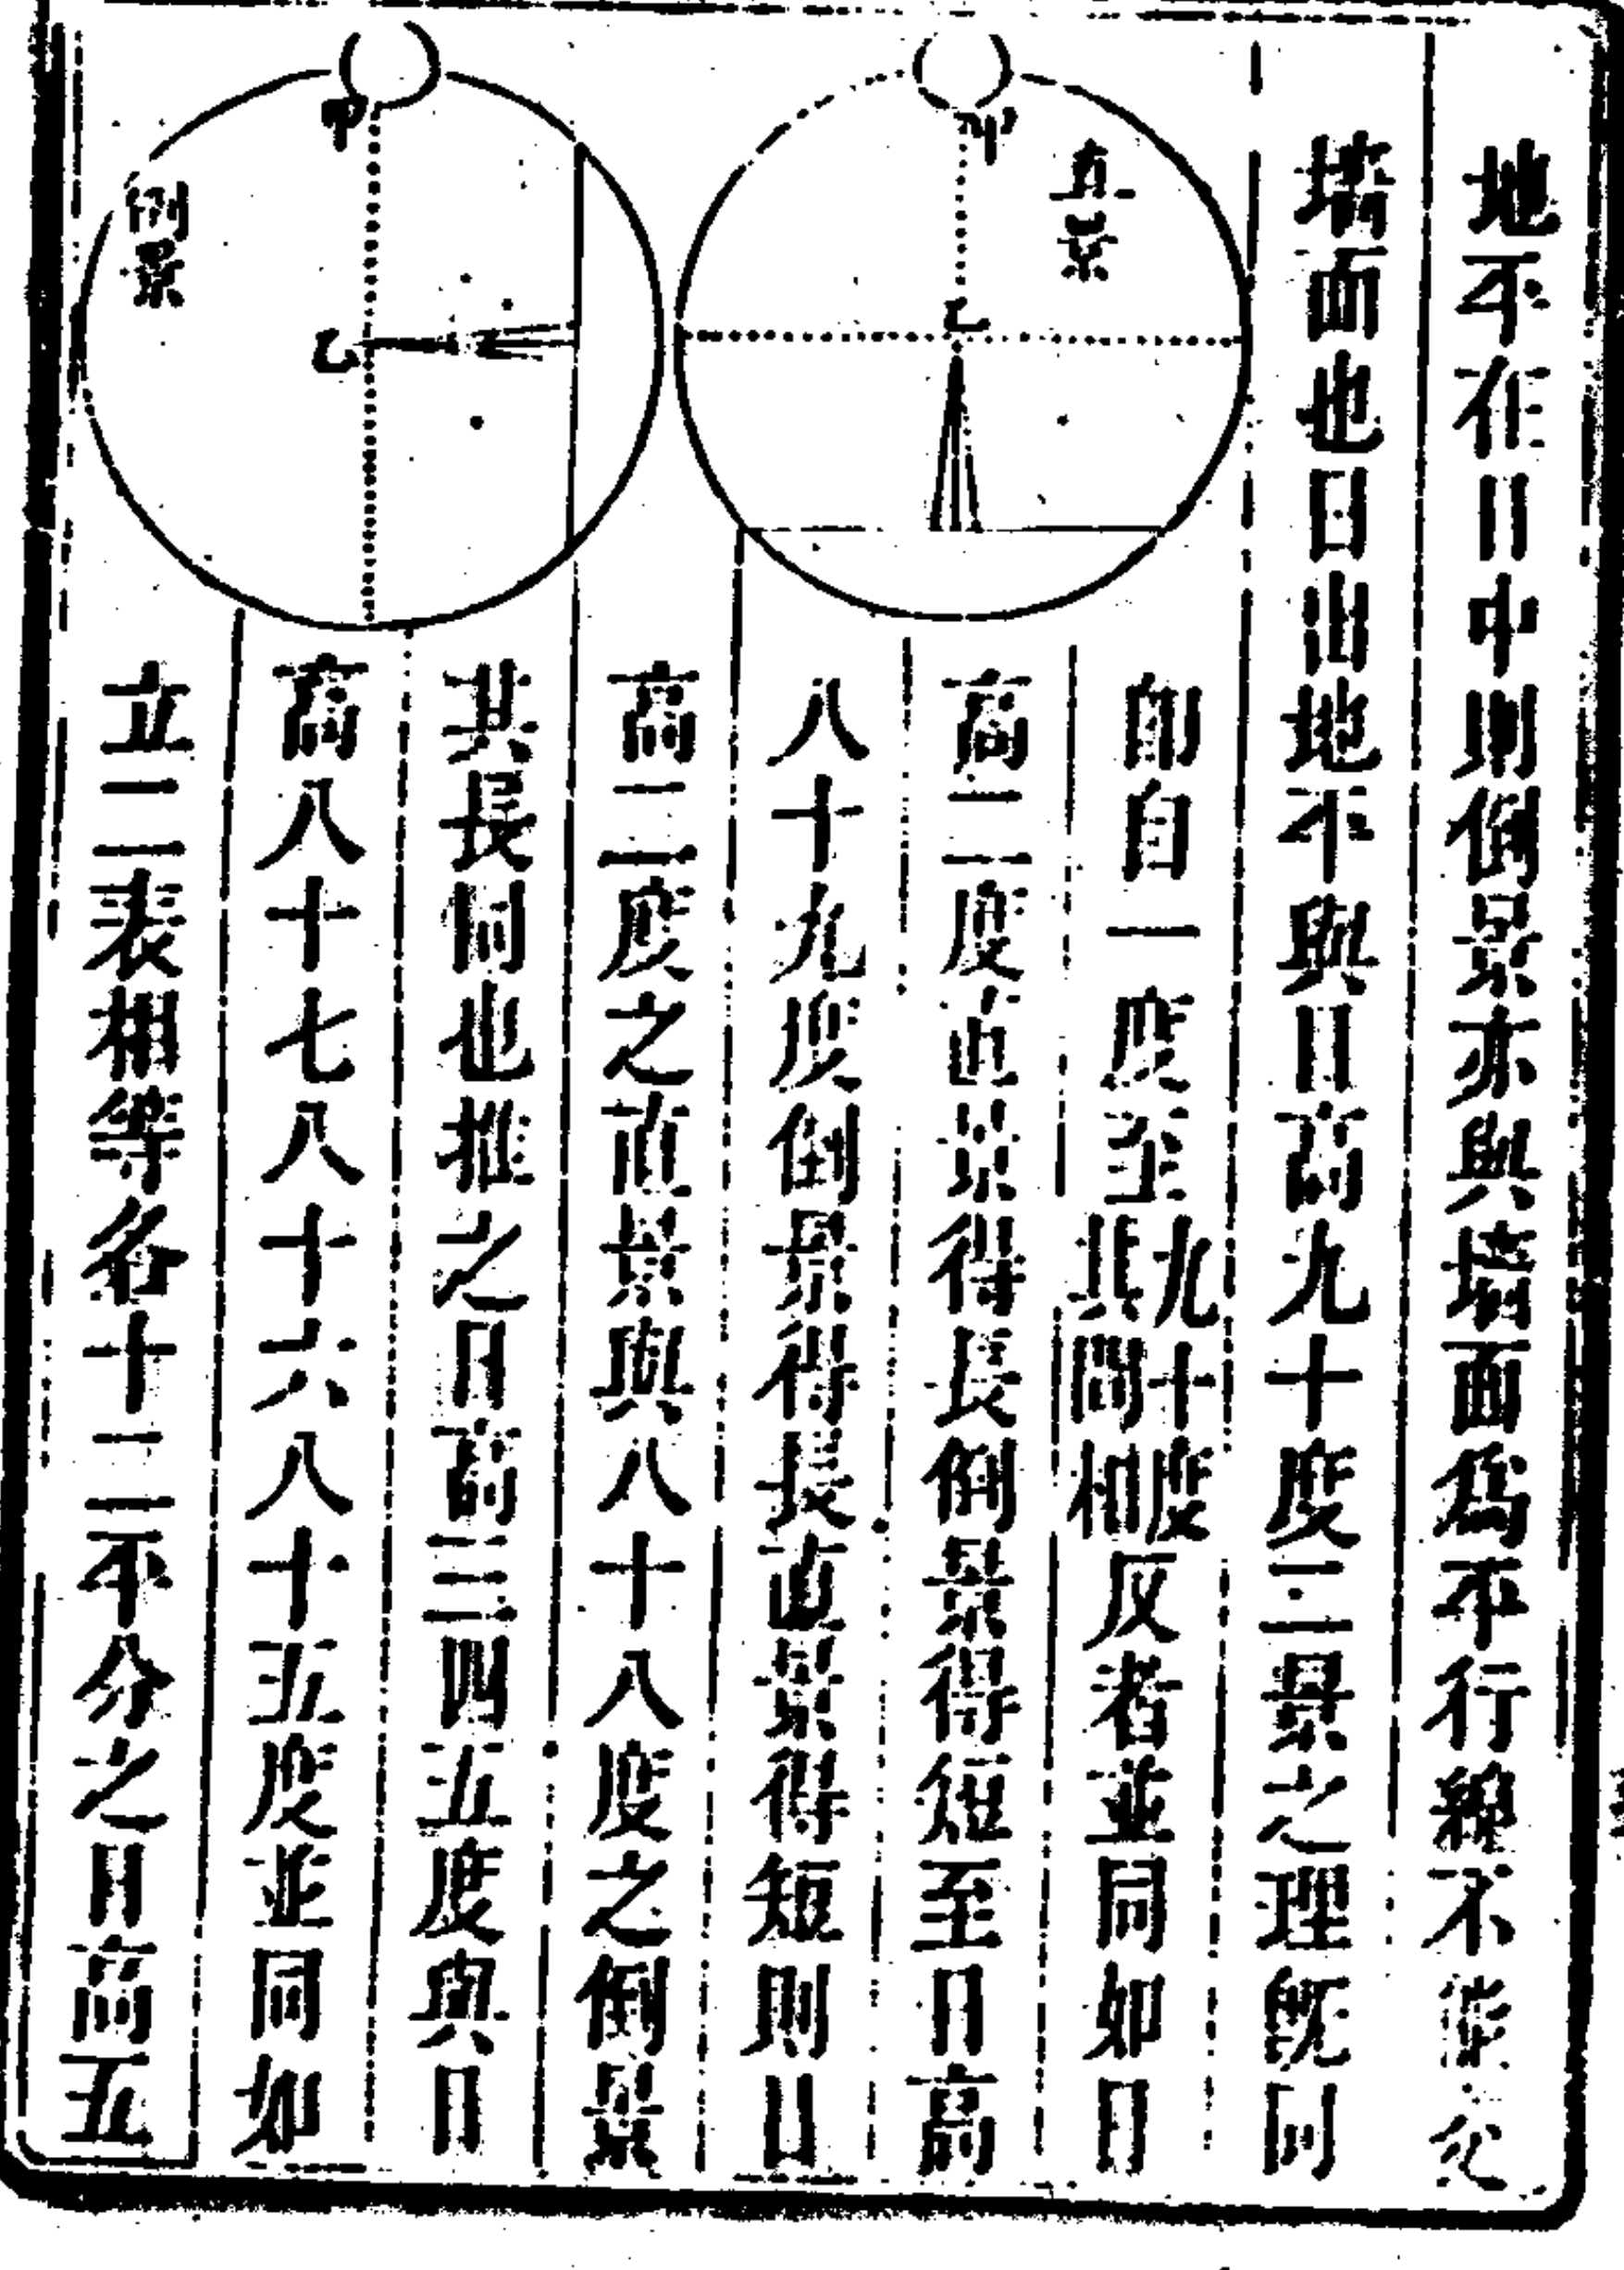 地平在日中則倒景亦與墻面為平行線不能交
墻面也日出地平與日高九十度二景之理既同
直景
甲
乙
倒景
甲
乙
即自一度至九十度其間相反者並同如日
高二度直景得長倒景得短至日高
八十九度倒景得長直景得短則日
高二度之直景與八十八度之倒景
其長同也推之日高三四五度與日
高八十七八十六八十五度並同如
立二表相等各十二平分之日高五